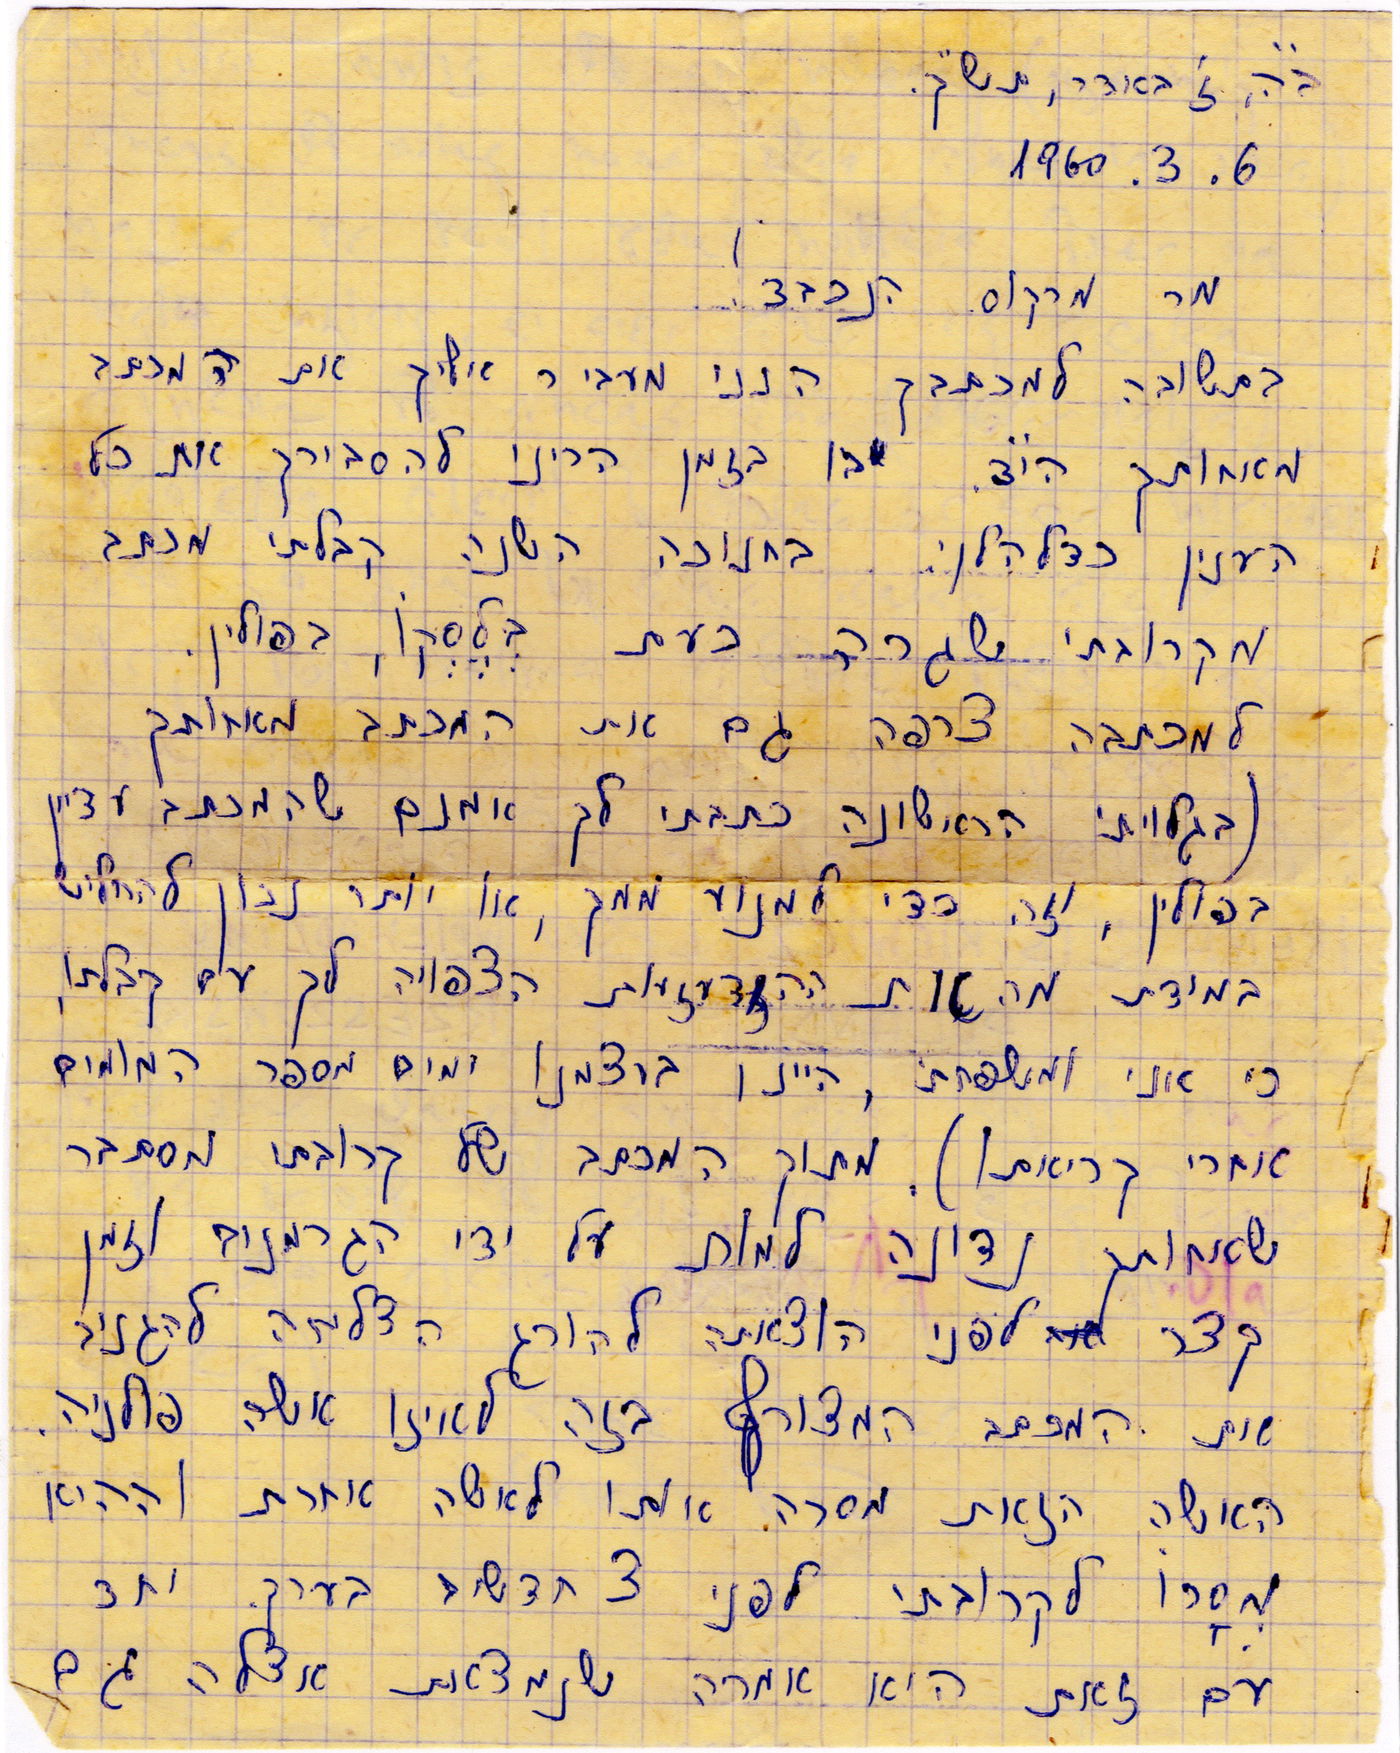 ב"ה, ז' באדר, תש"ך.
6. 3. 1960
מר מרקוס הנכבד!
בתשובה למכתבך הנני מעביר אליך את המכתב
מאחותך הי"ד. בו בזמן הריני להסבירך את כל
הענין כדלהלן: בחנוכה השנה קבלתי מכתב
מקרובתי שגרה כעת בְּלֶסְקוֹ, בפולין.
למכתבה צרפה גם את המכתב מאחותך
(בגלויתי הראשונה כתבתי לך אמנם שהמכתב עדיין
בפולין, וזה כדי למנוע ממך, או יותר נכון להחליש
במידת מה את ההזדעזעות הצפויה לך עם קבלתו,
כי אני ומשפחתי, היינו בעצמנו ימים מספר המומים
אחרי קריאתו). מתוך המכתב של קרובתי מסתבר
שאחותך נדונה למות על ידי הגרמנים וזמן
קצר לפני הוצאתה להורג הצליחה להגניב
את המכתב המצורף בזה לאיזו אשה פולניה.
האשה הזאת מסרה אותו לאשה אחרת וההיא
מְסָרוֹ לקרובתי לפני 3 חדשים בערך. יחד
עם זאת היא אמרה שנמצאת אצלה גם